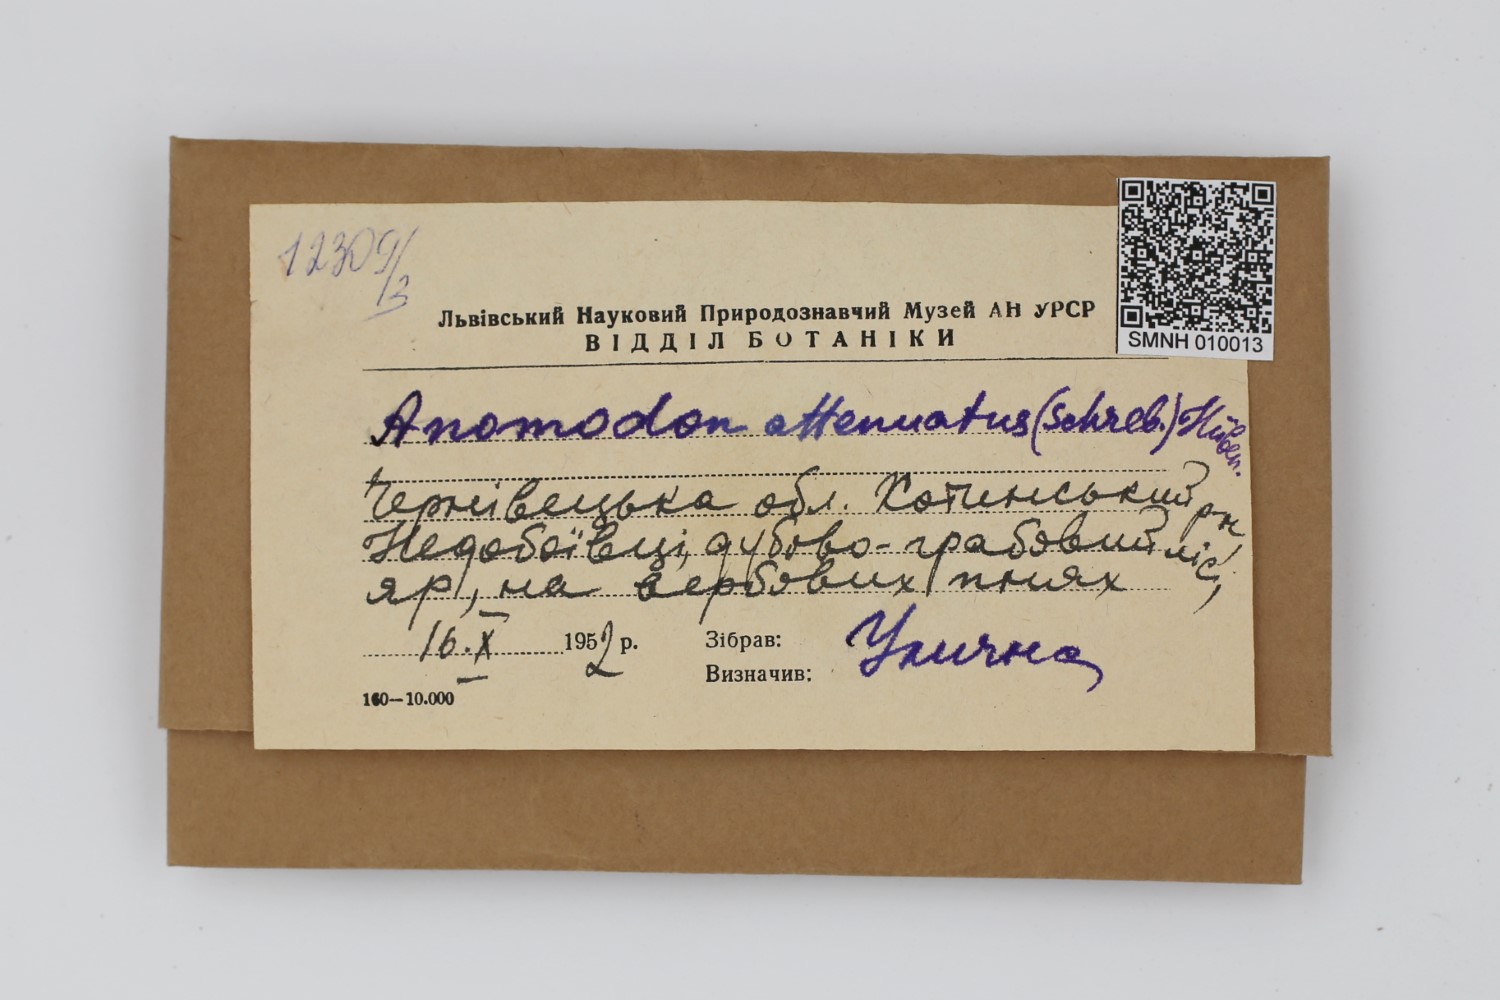 12309/3
Львівський Науковий Природознавчий Музей АН УРСР
ВІДДІЛ БОТАНІКИ
SMNH 010013
Anomodon attenuatus (Schreb.) Hüben.
Чернівецька обл. Хотинський рн
Недобоївці, дубово-грабовий ліс,
яр, на вербових пнях
16.X 1952 р. Зібрав: Улична
Визначив:
100—10.000